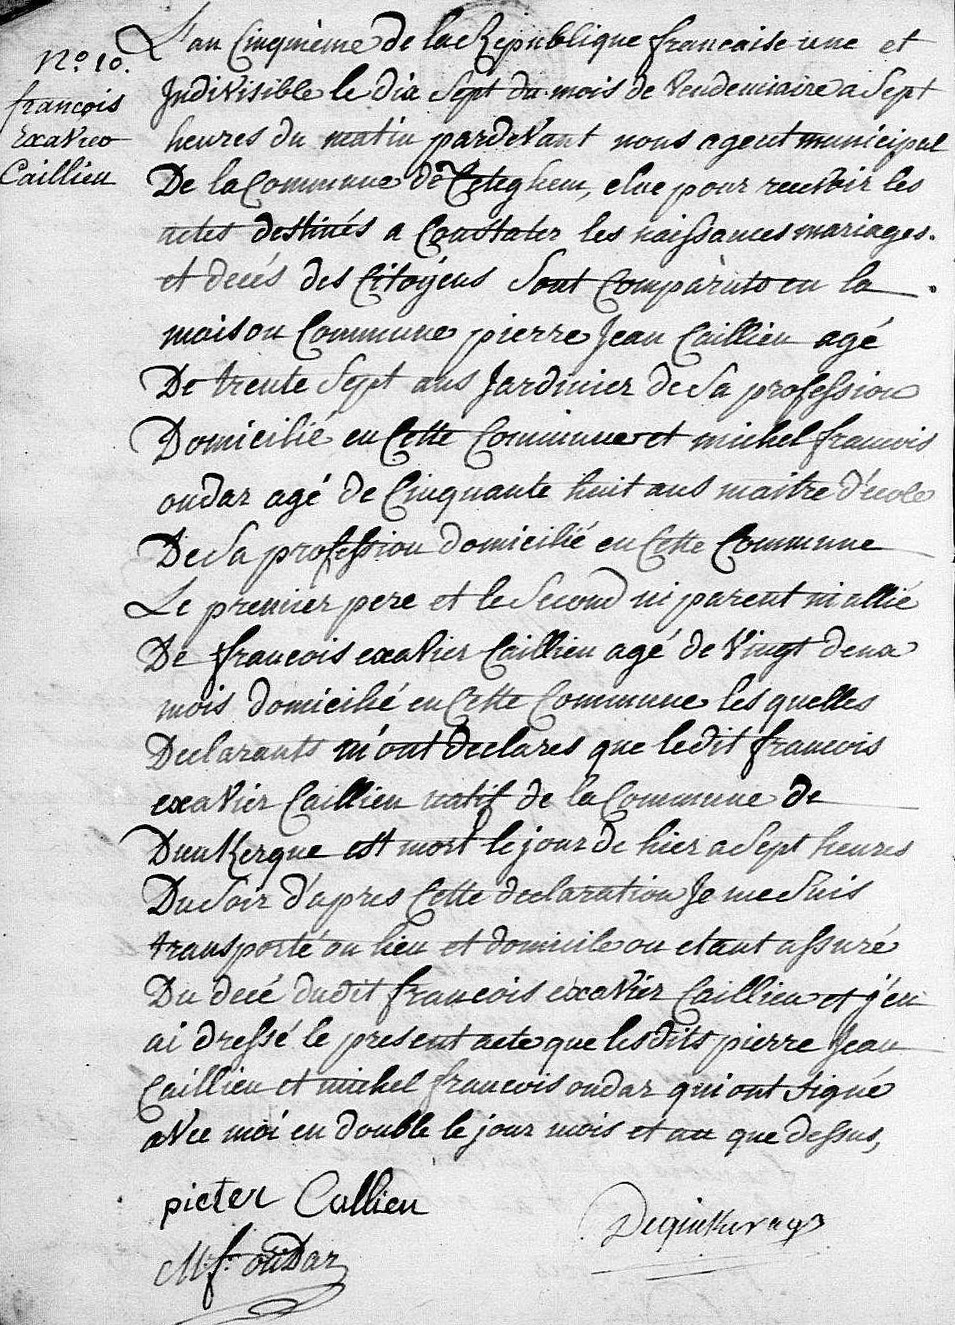 N.o 10.
françois
exavier
Caillieu
L'an Cinqnieme de la Republique francaise une et
Jndivisible le dix Sept du mois de Vendemiaire a Sept
heures du matin pardevant nous agent municipal
De la Commune de Teteghem, elue pour recevoir les
actes destinés a Constater les naissances mariages.
et decés des Citoÿens Sont Comparuts en la
maison Commune pierre Jean Caillieu agé
De trente Sept ans Jardinier de Sa profession
Domicilié en Cette Commune et michel francois
oudar agé de Cinquante huit ans maitre d'école
De Sa profession domicilié en Cette Commune
Le premier pere et le Second ni parent ni allié
De francois exavier Caillieu agé de Vingt deux
mois domicilié en Cette Commune les quelles
Declarants m'ont declares que ledit francois
exavier Caillieu natif de la Commune de
Dunkerque est mort le jour de hier a Sept heures
Du Soir d'apres Cette declaration Je me Suis
transporté au lieu et domicile ou etant assuré
Du decé dudit francois exavier Caillieu et j'en
ai dressé le present acte que lesdits pierre Jean
Caillieu et michel francois oudar qui ont signé
avec moi en double le jour mois et an que dessus,
pieter Callieu
M. f. ouDar